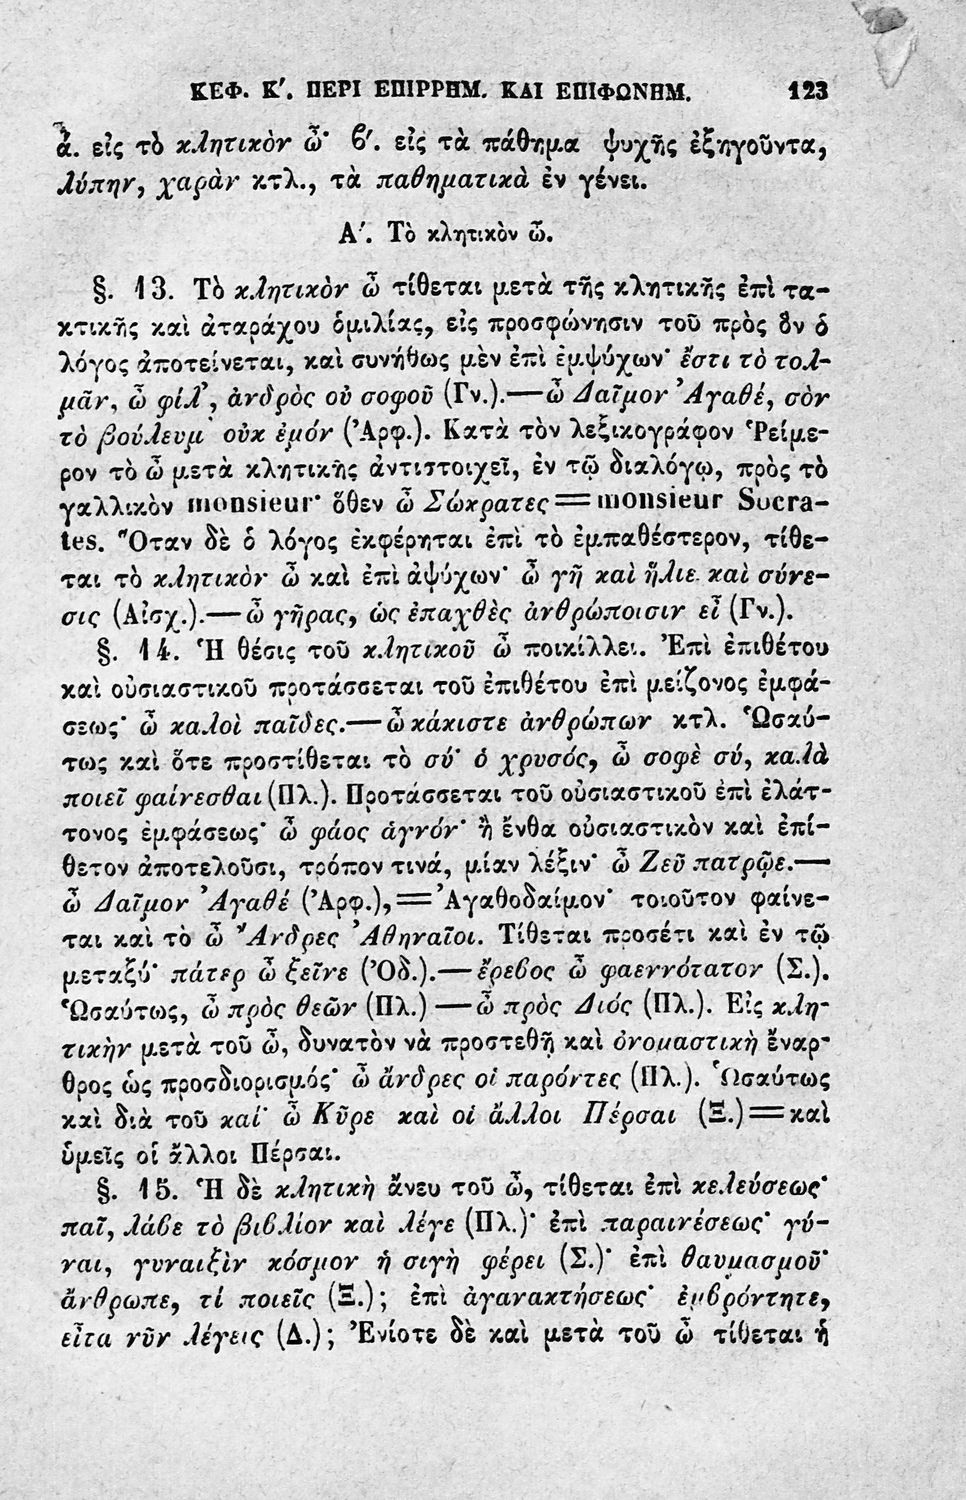 ΚΕΦ. Κʹ. ΠΕΡΙ ΕΠΙΡΡΗΜ. ΚΑΙ ΕΠΙΦΩΝΗΜ. 123
ἆ. εἰς τὸ κλητικὸν ὦ· ϐʹ. εἰς τὰ πάθημα ψυχῆς ἐξηγοῦντα,
λύπην, χαρὰν κτλ., τὰ παθηματικὰ ἐν γένει.
Αʹ. Τὸ κλητικὸν ὦ.
§. 13. Τὸ κλητικὸν ὦ τίθεται μετὰ τῆς κλητικῆς ἐπὶ τα-
κτικῆς καὶ ἀταράχου ὁμιλίας, εἰς προσφώνησιν τοῦ πρὸς ὃν ὁ
λόγος ἀποτείνεται, καὶ συνήθως μὲν ἐπὶ ἐμψύχων· ἔστι τὸ τολ-
μᾶν, ὦ φίλ', ἀνδρὸς οὐ σοφοῦ (Γν.).—ὦ Δαῖμον Ἀγαθέ, σὸν
τὸ βούλευμ' οὐκ ἐμόν (Ἀρφ.). Κατὰ τὸν λεξικογράφον Ῥείμε-
ρον τὸ ὦ μετὰ κλητικῆς ἀντιστοιχεῖ, ἐν τῷ διαλόγῳ, πρὸς τὸ
γαλλικὸν monsieur· ὅθεν ὦ Σώκρατες = monsieur Socra-
tes. Ὅταν δὲ ὁ λόγος ἐκφέρηται ἐπὶ τὸ ἐμπαθέστερον, τίθε-
ται τὸ κλητικὸν ὦ καὶ ἐπὶ ἀψύχων· ὦ γῆ καὶ ἥλιε καὶ σύνε-
σις (Αἰσχ.).—ὦ γῆρας, ὡς ἐπαχθὲς ἀνθρώποισιν εἶ (Γν.).
§. 14. Ἡ θέσις τοῦ κλητικοῦ ὦ ποικίλλει. Ἐπὶ ἐπιθέτου
καὶ οὐσιαστικοῦ προτάσσεται τοῦ ἐπιθέτου ἐπὶ μείζονος ἐμφά-
σεως· ὦ καλοὶ παῖδες.—ὦ κάκιστε ἀνθρώπων κτλ. Ὡσαύ-
τως καὶ ὅτε προστίθεται τὸ σύ· ὁ χρυσός, ὦ σοφὲ σύ, καλὰ
ποιεῖ φαίνεσθαι (Πλ.). Προτάσσεται τοῦ οὐσιαστικοῦ ἐπὶ ἐλάτ-
τονος ἐμφάσεως· ὦ φάος ἁγνόν· ἢ ἔνθα οὐσιαστικὸν καὶ ἐπί-
θετον ἀποτελοῦσι, τρόπον τινά, μίαν λέξιν· ὦ Ζεῦ πατρῷε.—
ὦ Δαῖμον Ἀγαθέ (Ἀρφ.), = Ἀγαθοδαίμον· τοιοῦτον φαίνε-
ται καὶ τὸ ὦ Ἄνδρες Ἀθηναῖοι. Τίθεται προσέτι καὶ ἐν τῷ
μεταξύ· πάτερ ὦ ξεῖνε (Ὀδ.).—ἔρεϐος ὦ φαεννότατον (Σ.).
Ὡσαύτως, ὦ πρὸς θεῶν (Πλ.) — ὦ πρὸς Διός (Πλ.). Εἰς κλη-
τικὴν μετὰ τοῦ ὦ, δυνατὸν νὰ προστεθῇ καὶ ὀνομαστικὴ ἔναρ-
θρος ὡς προσδιορισμός· ὦ ἄνδρες οἱ παρόντες (Πλ.). Ὡσαύτως
καὶ διὰ τοῦ καί· ὦ Κῦρε καὶ οἱ ἄλλοι Πέρσαι (Ξ.) = καὶ
ὑμεῖς οἱ ἄλλοι Πέρσαι.
§. 15. Ἡ δὲ κλητικὴ ἄνευ τοῦ ὦ, τίθεται ἐπὶ κελεύσεως·
παῖ, λάϐε τὸ βιϐλίον καὶ λέγε (Πλ.)· ἐπὶ παραινέσεως· γύ-
ναι, γυναιξὶν κόσμον ἡ σιγὴ φέρει (Σ.)· ἐπὶ θαυμασμοῦ·
ἄνθρωπε, τί ποιεῖς (Ξ.); ἐπὶ ἀγανακτήσεως· ἐμϐρόντητε,
εἶτα νῦν λέγεις (Δ.); Ἐνίοτε δὲ καὶ μετὰ τοῦ ὦ τίθεται ἡ